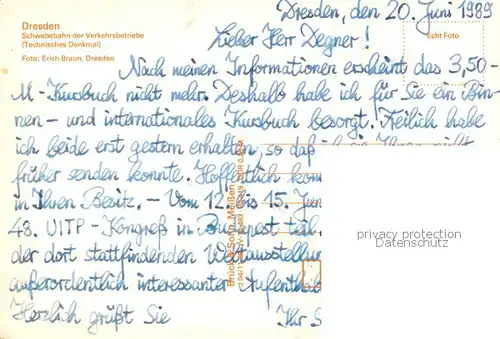 Dresden
Schwebebahn der Verkehrsbetriebe
(Technisches Denkmal)
Foto: Erich Braun, Dresden
Echt Foto
Dresden, den 20. Juni 1989
Lieber Herr Degner!
Nach meinen Informationen erscheint das 3,50-
M-Kursbuch nicht mehr. Deshalb habe ich für Sie ein Bin-
nen- und internationales Kursbuch besorgt. Freilich habe
ich beide erst gestern erhalten, so daß ich sie Ihnen nicht
früher senden konnte. Hoffentlich kom
in Ihren Besitz. - Vom 12. bis 15. Jun
48. UITP-Kongreß in Budapest teil.
der dort stattfindenden Weltausstellun
außerordentlich interessanter Aufenthal
Herzlich grüßt Sie
Ihr S
Brück & Sohn, Meißen
privacy protection
Datenschutz